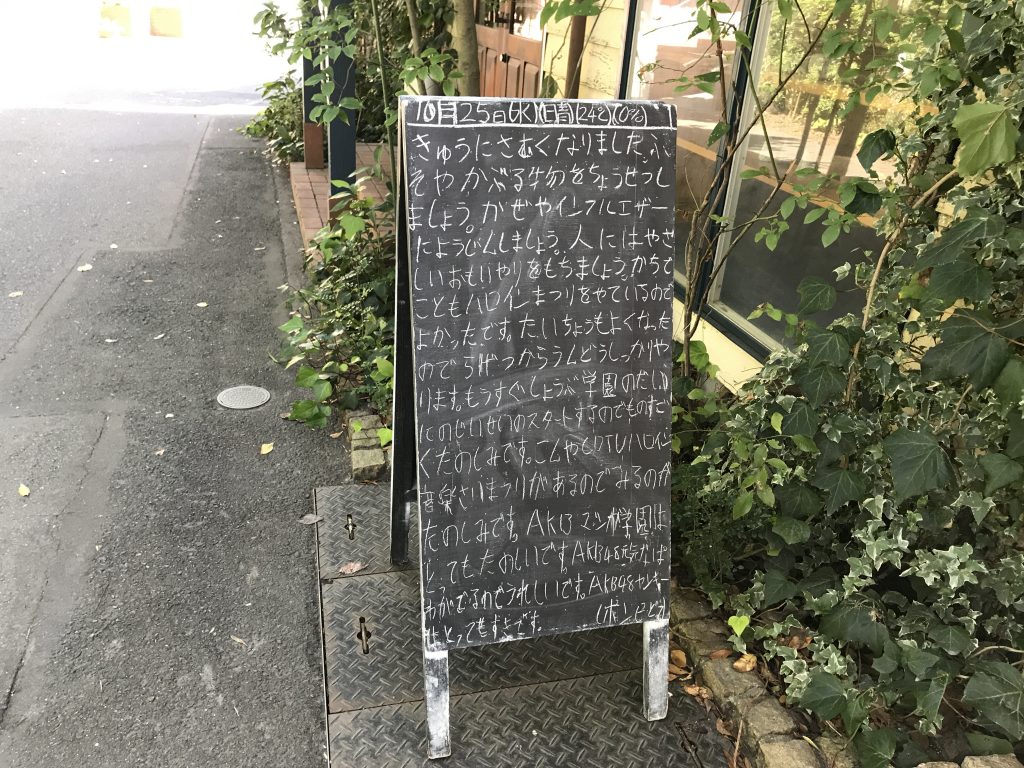 10月25日(水)(日青)(24℃)(0%)
きゅうにさむくなりました。ふ
そやかぶる物をちょうせつし
ましょう。かぜやインフルエザー
にようじんしましょう。人にはやさ
しいおもいやりをもちましょう。からで
こともハロインまつりをやているので
よかったです。たいちょうもよくなった
ので らげつからうんどうしっかりや
ります。もうすぐしょうぶ学園の
スタートするのでものすご
くたのしみです。こんや TVハロイン
音楽さいまつりがあるのでみるのが
たのしみです。AKB 学園は
とてもたのしいです。AKB48
がでるのでうれしいです。AKB48
とってもすきです。